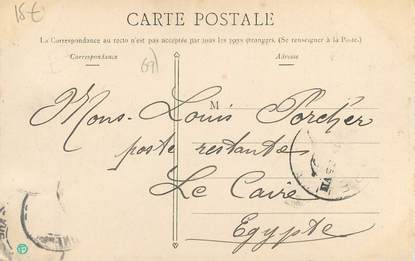 15€
CARTE POSTALE
La Correspondance au recto n'est pas acceptée par tous les pays étrangers. (Se renseigner à la Poste.)
Correspondance Adresse
(69)
M
Mons. Louis Porcher
poste restante
Le Caire
Egypte